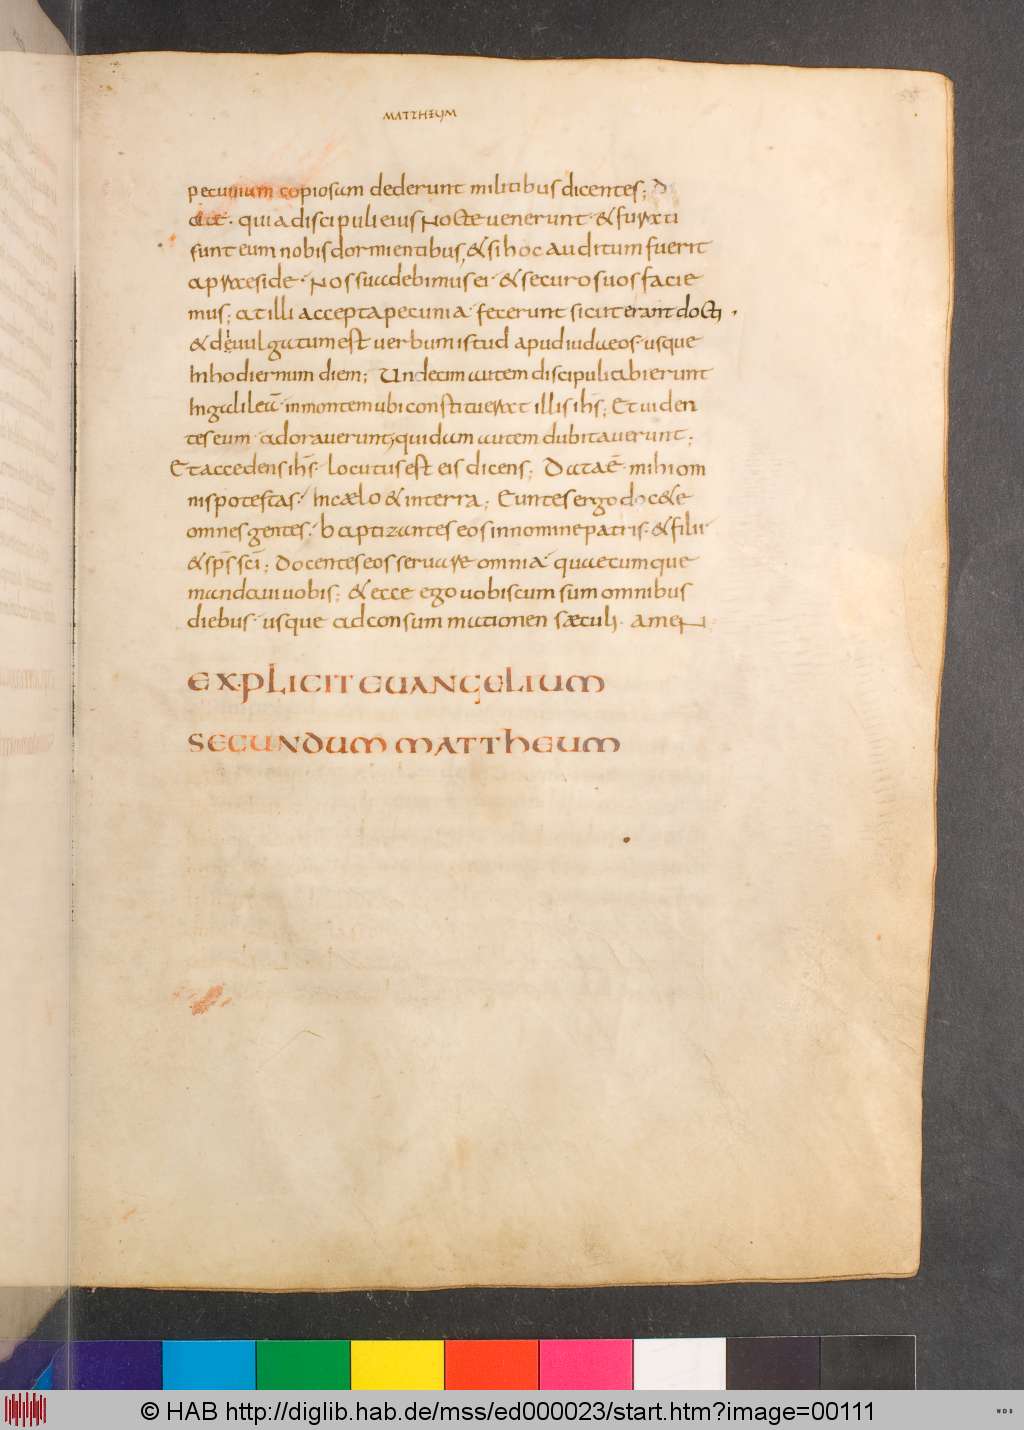 MATTHEUM
pecuniam copiosam dederunt militibus dicentes; D
icite · quia discipuli eius nocte uenerunt · & furati
sunt eum nobis dormientibus, & si hoc auditum fuerit
a praeside · Nos suadebimus ei · & securos uos facie
mus; at illi accepta pecunia · fecerunt sicut erant docti ·
& deuulgatum est uerbum istud apud iudaeos · usque
In hodiernum diem; Undecim autem discipuli abierunt
In galileā · in montem ubi constituerat illis ihs̄; Et uiden
tes eum · adorauerunt; quidam autem dubitauerunt;
Et accedens ihs̄ · locutus est eis dicens; Data ē · mihi om
nis potestas · In cælo & in terra; Euntes ergo doc&e
omnes gentes · baptizantes eos in nomine patris · & filii
& sp̄s sc̄i; Docentes eos seruare omnia · quaecumque
mandaui uobis; & ecce ego uobiscum sum omnibus
diebus · usque ad consummationen sæculi · ameN
EXPLICIT EUANGELIUM
SECUNDUM MATTHEUM
© HAB http://diglib.hab.de/mss/ed000023/start.htm?image=00111